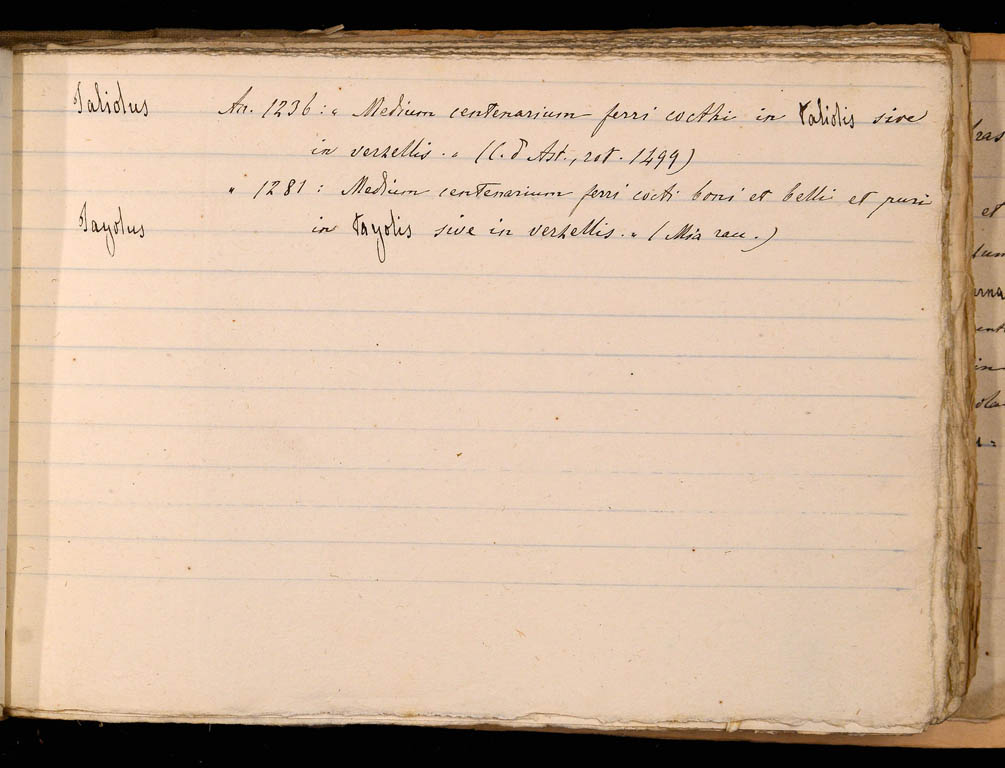 Taliolus An. 1236: " Medium centenarium ferri cocthi in taliolis sive
in verzellis. " (C. d'Ast., rot. 1499)
" 1281: Medium centenarium ferri cocti boni et belli et puri
Tayolus in tayolis sive in verzellis. " (Mia rac.)
ras
et
tum
arna
in
ola